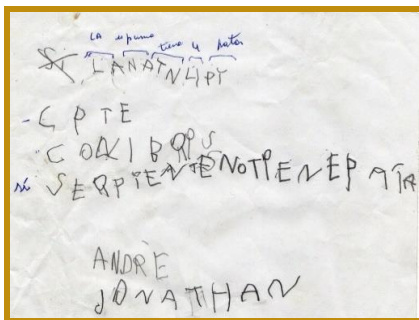 LA espuma tiene 4 patas
LANATNLIPT
- C P T E
- COALIBRPS
sí SERPIENTESNOTIENEPATA
ANDRÈ
JONATHAN